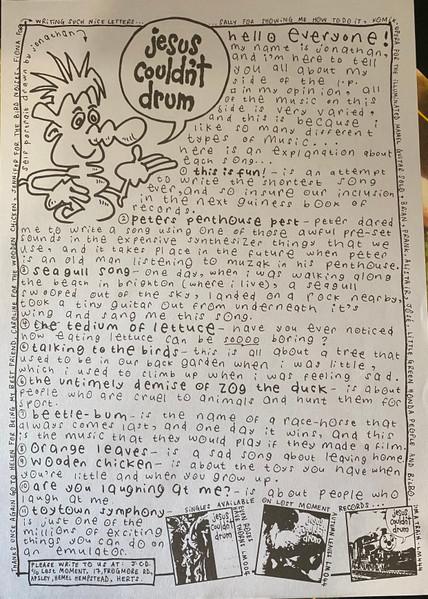 WRITING SUCH NICE LETTERS...
SALLY FOR SHOWING ME HOW TO DO IT,
jesus
couldn't
drum
self portrait drawn by jonathan
hello everyone!
my name is jonathan,
and i'm here to tell
you all about my
side of the l.p.
in my opinion, all
of the music on this
side is very varied,
and this is because i
like so many different
types of music...
here is an explanation about
each song...
① this is fun! - is an attempt
to write the shortest song
ever, and so insure our inclusion
in the next guiness book of
records.
② peters penthouse pest - peter dared
me to write a song using one of those awful pre-set
sounds in the expensive synthesizer thingy that we
use, and it takes place in the future when peter
is an old man listening to muzak in his penthouse.
③ seagull song - one day, when i was walking along
the beach in brighton (where i live), a seagull
swooped out of the sky, landed on a rock nearby,
took a tiny guitar out from underneath it's
wing and sang me this song.
④ the tedium of lettuce - have you ever noticed
how eating lettuce can be soooo boring?
⑤ talking to the birds - this is all about a tree that
used to be in our back garden when i was little,
which i used to climb up when i was feeling sad.
⑥ the untimely demise of zog the duck - is about
people who are cruel to animals and hunt them for
sport.
⑦ beetle-bum - is the name of a race-horse that
always comes last, and one day it wins, and this
is the music that they would play if they made a film.
⑧ orange leaves - is a sad song about leaving home.
⑨ wooden chicken - is about the toys you have when
you're little and when you grow up.
⑩ are you laughing at me? - is about people who
laugh at me.
⑪ toytown symphony -
is just one of the
millions of exciting
things you can do on
an emulator.
SINGLES AVAILABLE ON LOST MOMENT RECORDS...
jesus
couldn't
drum
LM 004
jesus
couldn't
drum
I'M A TRAIN
PLEASE WRITE TO US AT: J.C.D.
c/o LOST MOMENT, 17, FROGMORE RD,
APSLEY, HEMEL HEMPSTEAD, HERTS.
THANKS ONCE AGAIN GO TO HELEN FOR BEING MY BEST FRIEND, CAROLINE FOR THE WOODEN CHICKEN, JENNIFER FOR THE BIRD NOISES, FIONA FOR
FOR THE ILLUMINATED
LITTLE GREEN HONDA PEOPLE AND BILBO